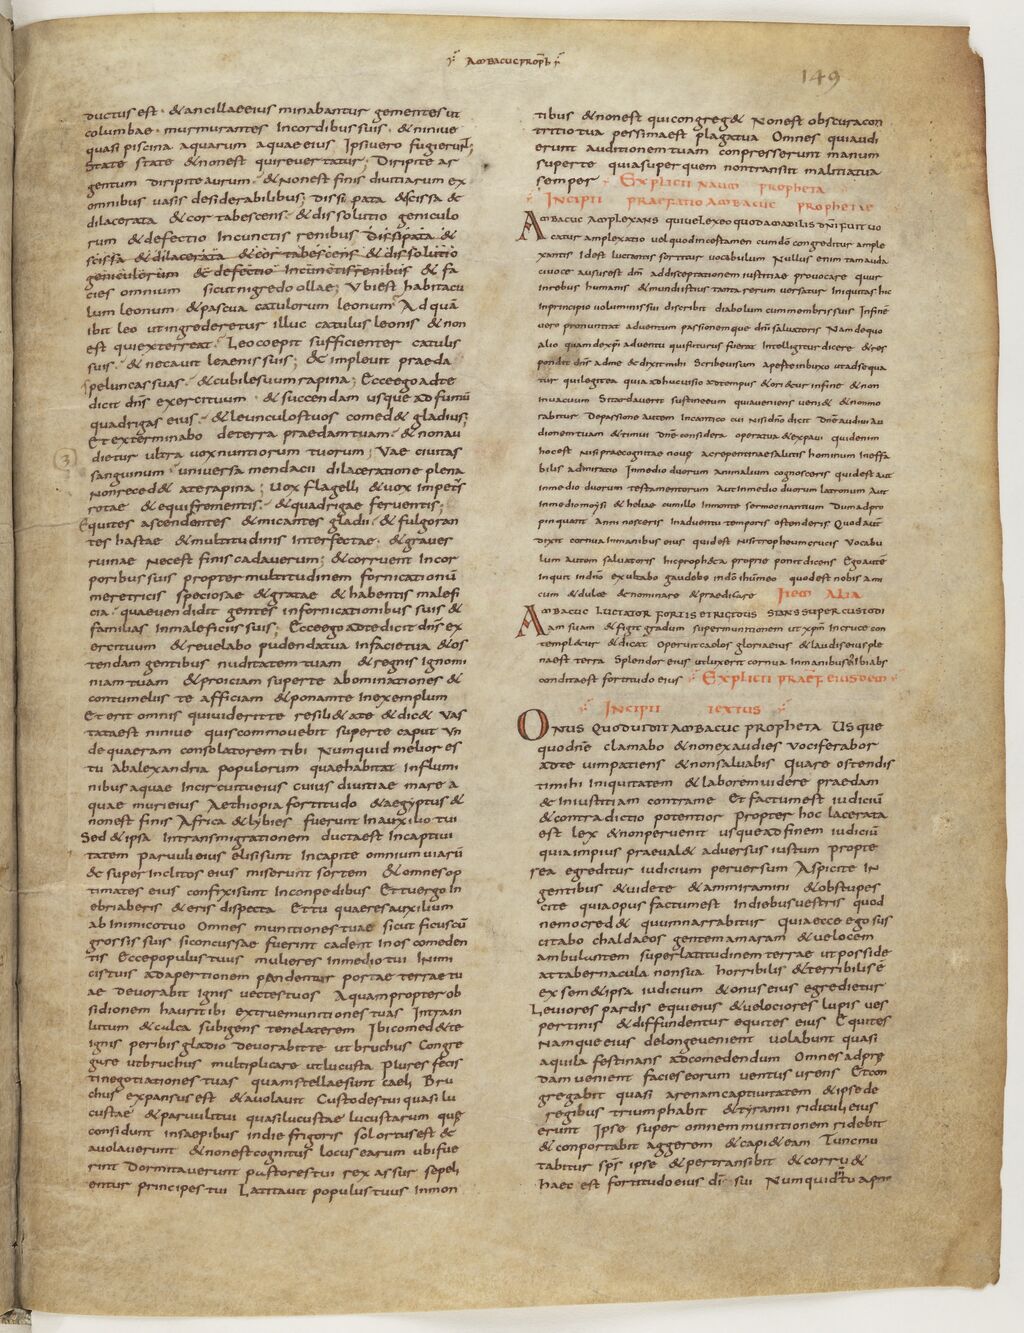 AMBACUC PROPH
149
ductus est · & ancillae eius minabantur gementes ut
columbae · murmurantes In cordibus suis · & ninive
quasi piscina aquarum aquae eius Ipsi vero fugierunt;
State state & non est qui revertatur; Diripite ar
gentum diripite aurum · & Non est finis divitiarum ex
omnibus vasis desiderabilibus; dissipata & scissa &
dilacerata & cor tabescens · & dissolutio geniculo
rum & defectio In cunctis renibus dissipata &
scissa & dilacerata & cor tabescens & dissolutio
geniculorum & defectio In cunctis renibus & fa
cies omnium sicut nigredo ollae; Ubi est habitacu
lum leonum · & pascua catulorum leonum Ad quā
ibit leo ut ingrederetur illuc catulus leonis & non
est qui exterreat · Leo coepit sufficienter catulis
suis · & necavit leaenis suis; & implevit praeda
speluncas suas · & cubile suum rapina; Ecce ego ad te
dicit dns exercituum · & succendam usque ad fumū
quadrigas eius · & leunculos tuos comed& gladius;
Et exterminabo de terra praedam tuam · & non au
dietur ultra vox nuntiorum tuorum; Vae civitas
3
sanguinum · universa mendacii dilaceratione plena
Non reced& a te rapina; vox flagelli & vox impetus
rotae & equi frementis · & quadrigae ferventis;
Equites ascendentes & micantes gladii · & fulguran
tes hastae & multitudinis interfectae · & graves
ruinae Nec est finis cadaverum; & corruent In cor
poribus suis propter multitudinem fornicationū
meretricis speciosae & gratae & habentis malefi
cia · quae vendidit gentes in fornicationibus suis &
familias In maleficiis suis; Ecce ego ad te dicit dns ex
ercituum & revelabo pudenda tua In facie tua & os
tendam gentibus nuditatem tuam & regnis Ignomi
niam tuam & proiciam super te abominationes &
contumeliis te afficiam & ponam te In exemplum
Et erit omnis qui viderit te resili& a te & dic& Vas
tata est ninive quis commovebit super te caput Un
de quaeram consolatorem tibi Numquid melior es
tu ab alexandria populorum quae habitat In flumi
nibus aquae In circuitu eius cuius divitiae mare a
quae muri eius Aethiopia fortitudo & aegyptus &
non est finis Africa & lybies fuerunt In auxilio tui
Sed & ipsa In transmigrationem ducta est In captivi
tatem Parvuli eius elisi sunt In capite omnium viarū
& super inclitos eius miserunt sortem & omnes op
timates eius confixi sunt In conpedibus Et tu ergo In
ebriaberis & eris dispecta Et tu quaeres auxilium
ab Inimico tuo Omnes munitiones tuae sicut ficus cū
grossis suis si concussae fuerint cadent In os comeden
tis Ecce populus tuus mulieres In medio tui Inimi
cis tuis ad apertionem pandentur portae terrae tu
ae devorabit Ignis vectes tuos Aquam propter ob
sidionem hauri tibi extrue munitiones tuas Intra In
lutum & calca subigens tene laterem Ibi comed& te
ignis peribis gladio devorabit te ut bruchus Congre
gare ut bruchus multiplicare ut lucusta Plures fecis
ti negotiationes tuas quam stellae sunt caeli Bru
chus expansus est & avolavit Custodes tui quasi lu
custae & parvuli tui quasi lucustae lucustarum quae
considunt In saepibus In die frigoris sol ortus est &
avolaverunt & non est cognitus locus earum ubi fue
rint Dormitaverunt pastores tui rex assur sepeli
entur principes tui Latitavit populus tuus In mon
tibus & non est qui congreg& Non est obscura con
tritio tua pessima est plaga tua Omnes qui audi
erunt auditionem tuam conpresserunt manum
super te quia super quem non transiit malitia tua
semper Explicit Naum propheta
Incipit praefatio Ambacuc prophetae
Ambacuc amplexans qui vel ex eo quod amabilis dni fuit vo
catur amplexatio vel quod in certamen cum dō congreditur ample
xantis Id est luctantis sortitur vocabulum Nullus enim tam auda
ci voce ausus est dm ad disceptationem iustitiae provocare cur
In rebus humanis & mundi istius tanta rerum versatur Iniquitas hic
In principio voluminis sui discribit diabolum cum membris suis In fine
vero pronuntiat adventum passionemque dni salvatoris Nam de quo
alio quam de xpi adventu qui futurus fuerat Intelligitur dicere & res
pondit dns ad me & dixit mihi Scribe visum aperte In buxo ut adsequa
tur qui legit ea quia adhuc visio ad tempus & oriatur In fine & non
In vacuum Si tardaverit sustine eum quia veniens veni& & non mo
rabitur De passione autem In cantico cui Nisi dno dicit Dne audivi au
ditionem tuam & timui dne consideravi opera tua & expavi quid enim
hoc est Nisi praecognitae novae ac repentinae salutis hominum Ineffa
bilis admiratio In medio duorum animalium cognosceris quid est aut
In medio duorum testamentorum Aut In medio duorum latronum Aut
In medio moysi & heliae cum illo In monte sermocinantium Dum adpro
pinquant Anni nosceris In adventu temporis ostenderis Quod autē
dixit cornua In manibus eius quid est Nisi tropheum crucis Vocabu
lum autem salvatoris hic proph&a proprie ponit dicens Ego autē
Inquit In dno exultabo gaudebo In dō ihū meo quod est nobis ami
cum & dulce & nominare & praedicare Item alia
Ambacuc luctator fortis et rigidus stans super custodi
am suam & figit gradum super munitionem ut xpm In cruce con
templ&ur & dicat Operuit caelos gloria eius & laudis eius ple
na est terra Splendor eius ut lux erit cornua In manibus eius ibi abs
condita est fortitudo eius Explicit praef eiusdem
Incipit textus
Onus quod vidit Ambacuc propheta Usque
quo dne clamabo & non exaudies vociferabor
ad te vim patiens & non salvabis Quare ostendis
ti mihi Iniquitatem & laborem videre praedam
& Iniustitiam contra me Et factum est iudiciū
& contradictio potentior Propter hoc lacerata
est lex & non pervenit usque ad finem iudiciū
quia impius praeval& adversus iustum propte
rea egreditur iudicium perversum Aspicite In
gentibus & videte & ammiramini & obstupes
cite quia opus factum est In diebus vestris quod
nemo cred& quum narrabitur Quia ecce ego sus
citabo chaldaeos gentem amaram & velocem
ambulantem super latitudinem terrae ut posside
at tabernacula non sua Horribilis & terribilis ē
ex sem& ipsa iudicium & onus eius egredietur
Leviores pardis equi eius & velociores lupis ves
pertinis & diffundentur equites eius Equites
Namque eius de longe venient volabunt quasi
aquila festinans ad comedendum Omnes ad prae
dam venient facies eorum ventus urens Et con
gregabit quasi arenam captivitatem & ipse de
regibus triumphabit & tyranni ridiculi eius
erunt Ipse super omnem munitionem ridebit
& conportabit aggerem & capi& eam Tunc mu
tabitur sps ipse & pertransibit & corru&
haec est fortitudo eius di sui Numquid tu a prin